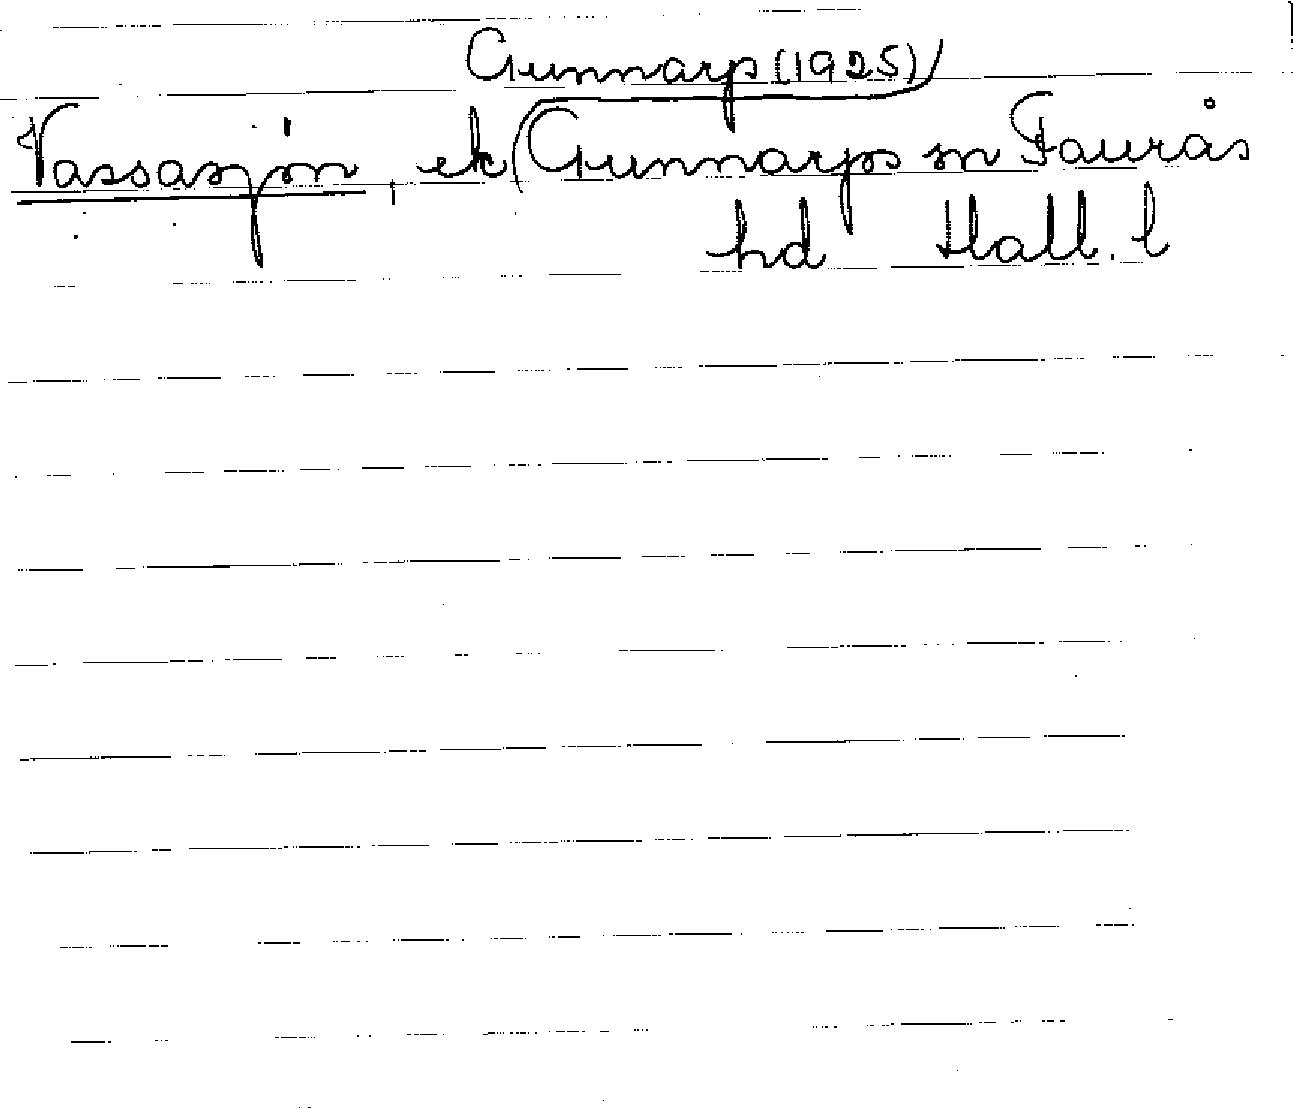 Gunnarp (1925)
Vassasjön, ek Gunnarps sn Faurås
hd Hall. l